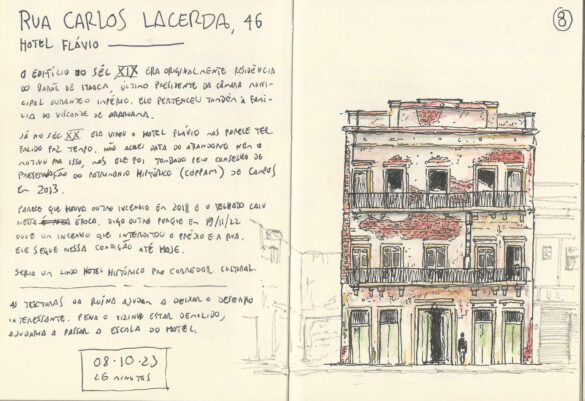 RUA CARLOS LACERDA, 46
HOTEL FLÁVIO
8
O EDIFÍCIO DO SÉC XIX ERA ORIGINALMENTE RESIDÊNCIA
DO BARÃO DE ITAOCA, ÚLTIMO PRESIDENTE DA CÂMARA MUNI-
CIPAL DURANTE O IMPÉRIO. ELE PERTENCEU TAMBÉM À FAMÍ-
LIA DO VISCONDE DE ARARUAMA.
JÁ NO SÉC XX ELE VIROU O HOTEL FLÁVIO MAS PARECE TER
FALIDO FAZ TEMPO. NÃO ACHEI DATA DO ABANDONO NEM O
MOTIVO PRA ISSO, MAS ELE FOI TOMBADO PELO CONSELHO DE
PRESERVAÇÃO DO PATRIMÔNIO HISTÓRICO (COPPAM) DE CAMPOS
EM 2013.
PARECE QUE HOUVE OUTRO INCÊNDIO EM 2018 E O TELHADO CAIU
NESSA ÉPOCA. DIGO OUTRO PORQUE EM 19/11/22
OUVE UM INCÊNDIO QUE INTERDITOU O PRÉDIO E A RUA.
ELE SEGUE NESSA CONDIÇÃO ATÉ HOJE.
SERIA UM LINDO HOTEL HISTÓRICO PRO CORREDOR CULTURAL.
AS TEXTURAS DA RUÍNA AJUDAM A DEIXAR O DESENHO
INTERESSANTE. PENA O VIZINHO ESTAR DEMOLIDO,
AJUDARIA A PASSAR A ESCALA DO HOTEL.
08·10·23
26 MINUTOS